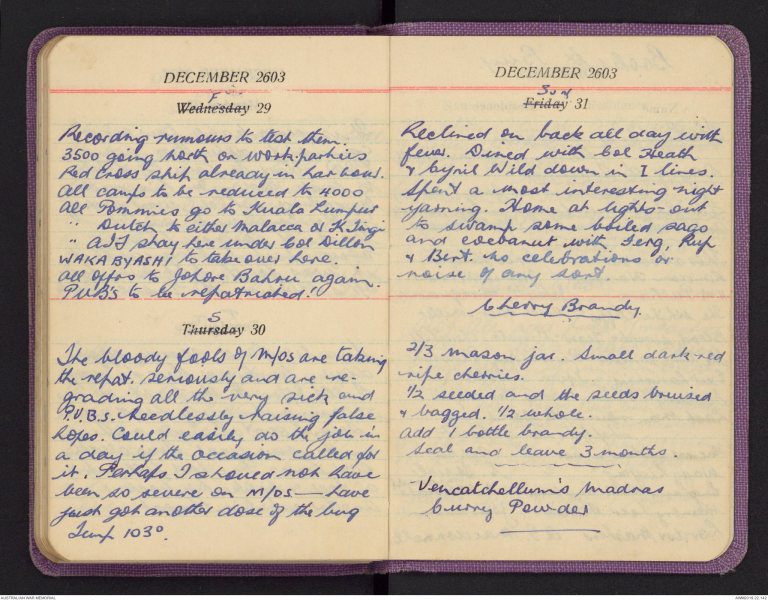 DECEMBER 2603
Fri
Wednesday 29
Recording rumours to test them.
3500 going North on work-parties
Red Cross ship already in harbour.
All camps to be reduced to 4000
All Pommies go to Kuala Lumpur
" Dutch to either Malacca or K.
" AIF stay here under Col Dillon
WAKABYASHI to take over here.
All offrs to Johore Bahru again.
P.U.B's to be repatriated!
S
Thursday 30
The bloody fools of M/Os are taking
the repat. seriously and are re-
grading all the very sick and
P.U.B.s. Needlessly raising false
hopes. Could easily do the job in
a day if the occasion called for
it. Perhaps I should not have
been so severe on M/OS — have
just got another dose of the bug
Temp 103°.
DECEMBER 2603
Sun
Friday 31
Reclined on back all day with
fever. Dined with Col Heath
& Cyril Wild down in I lines.
Spent a most interesting night
yarning. Home at lights-out
to swamp some boiled sago
and cocoanut with Ferg, Rup
& Bert. No celebrations or
noise of any sort.
Cherry Brandy.
2/3 mason jar. Small dark-red
ripe cherries.
1/2 seeded and the seeds bruised
& bagged. 1/2 whole.
add 1 bottle brandy.
Seal and leave 3 months.
Vencatchellum's Madras
Curry Powder
AUSTRALIAN WAR MEMORIAL
AWM2016.22.142